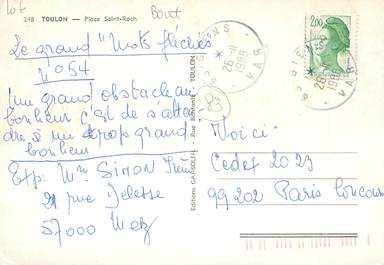 lot
Bouet
248 TOULON - Place Saint-Roch
Le grand "Mots fléchés
N° 54
"un grand obstacle au
bonheur c'est de s'atten-
dre à un trop grand
bonheur
Exp: Mme SIMON
21 rue Delesse
57000 Metz
Editions GAI-SOLEIL - Rue - TOULON
83
GIENS
26-11
1988
VAR
2,00
Voici
Cedex 2023
99202 Paris Concours